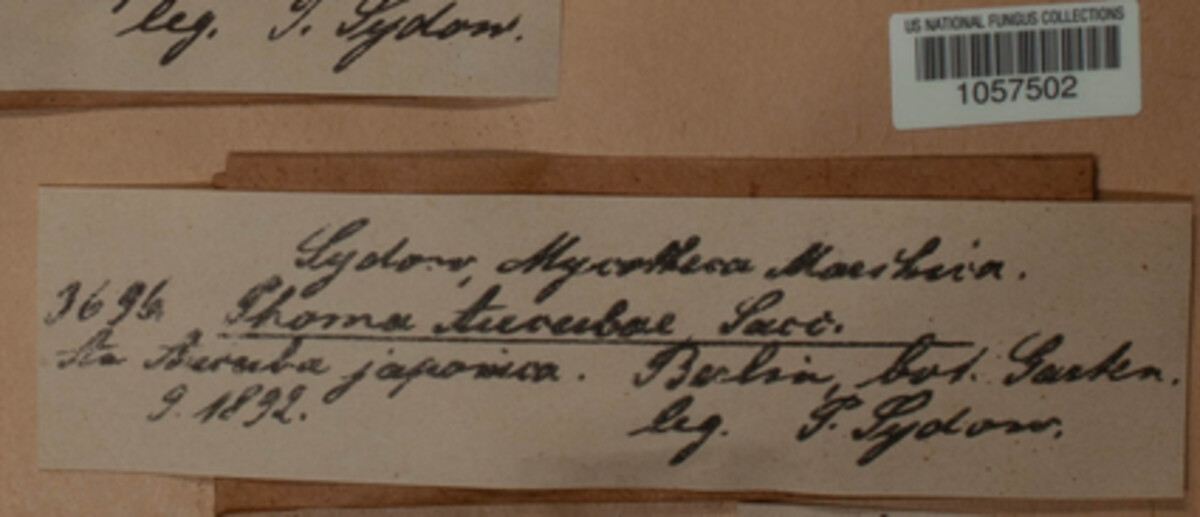 leg. P. Sydow.
US NATIONAL FUNGUS COLLECTIONS
1057502
Sydow, Mycotheca Marchica.
3696. Phoma Aucubae Sacc.
An Aucuba japonica. Berlin, bot. Garten.
9. 1892. leg. P. Sydow.